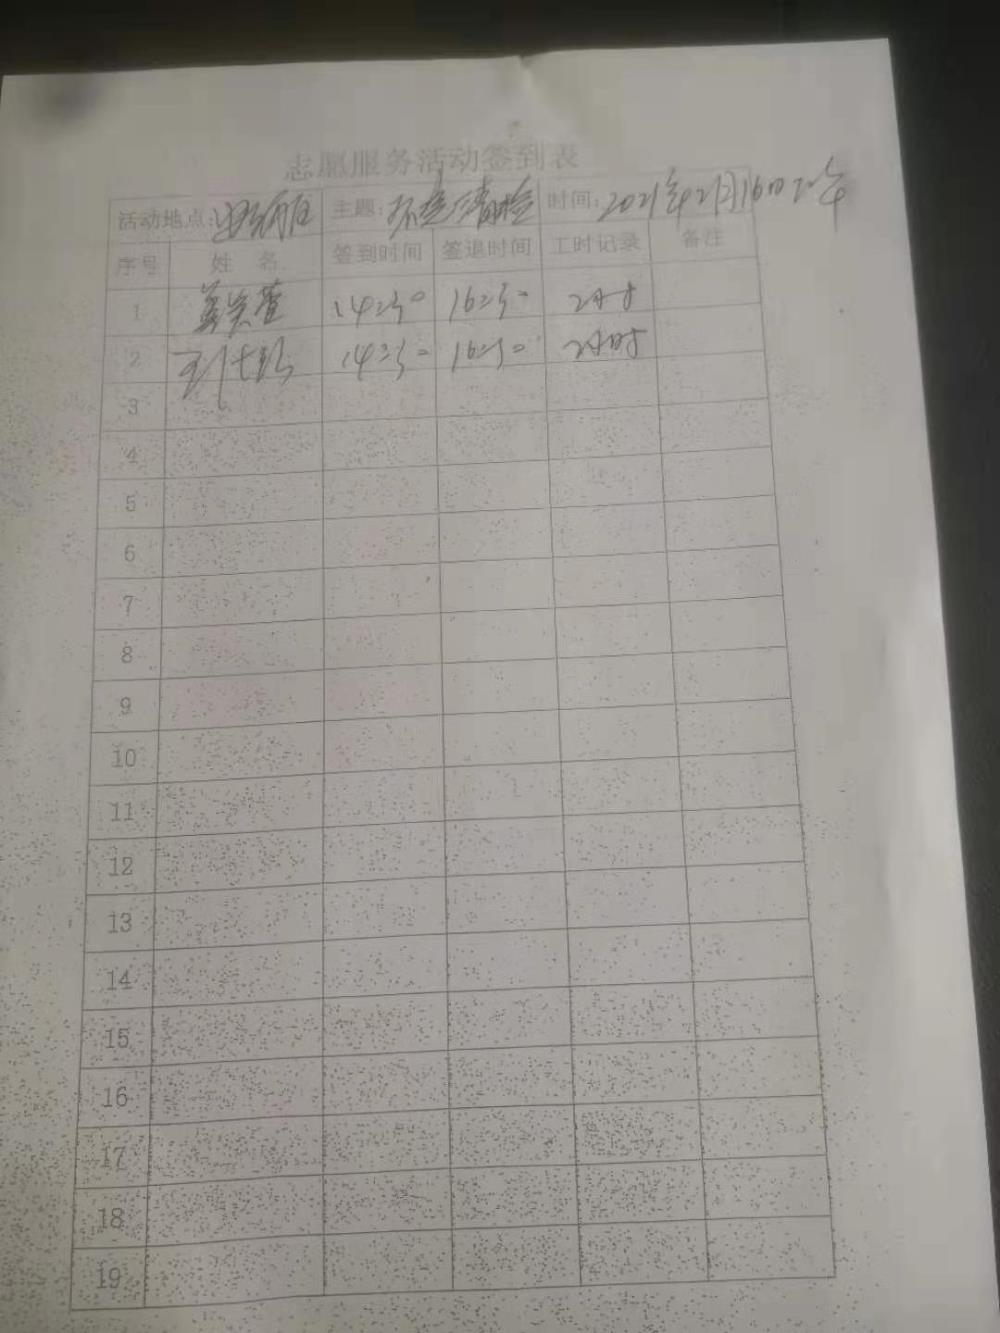 志愿服务活动签到表
活动地点: 主题: 环境清检 时间: 2021年2月16日下午
序号 姓 名 签到时间 签退时间 工时记录 备注
1 14:30 16:30 2小时
2 14:30 16:30 2小时
3
4
5
6
7
8
9
10
11
12
13
14
15
16
17
18
19